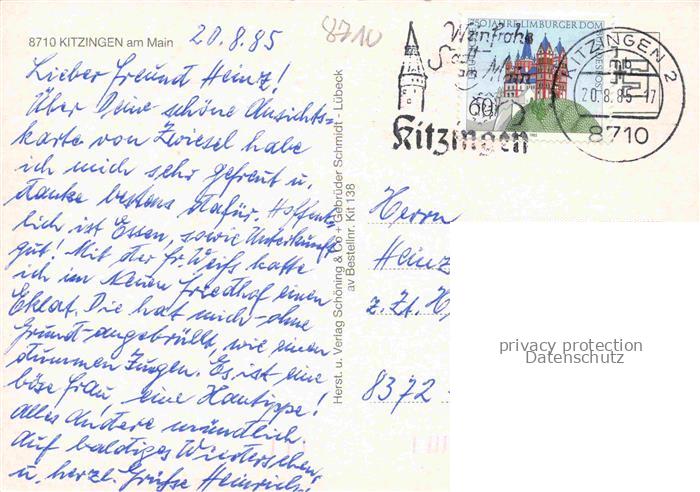 8710 KITZINGEN am Main
20.8.85
8710
Lieber Freund Heinz!
Über Deine schöne Ansichts=
karte von Zwiesel habe
ich mich sehr gefreut u.
danke bestens dafür. Hoffent-
lich ist Essen, sowie Unterkunft
gut! Mit der Fr. Weiß hatte
ich im Neuen Friedhof einen
Eklat. Die hat mich - ohne
Grund - angebrüllt, wie einen
dummen Jungen. Es ist eine
böse Frau, eine Xantippe!
Alles Andere mündlich.
Auf baldiges Wiedersehen,
u. herzl. Grüße Heinrich.
Herst. u. Verlag Schöning & Co + Gebrüder Schmidt - Lübeck
av Bestellnr. Kit 138
750 JAHRE LIMBURGER DOM
60
Weinfrohe
Stadt
am Main
Kitzingen
KITZINGEN 2
mb
20.8.85-17
8710
Herrn
Heinz
z. Zt. H
8372
privacy protection
Datenschutz